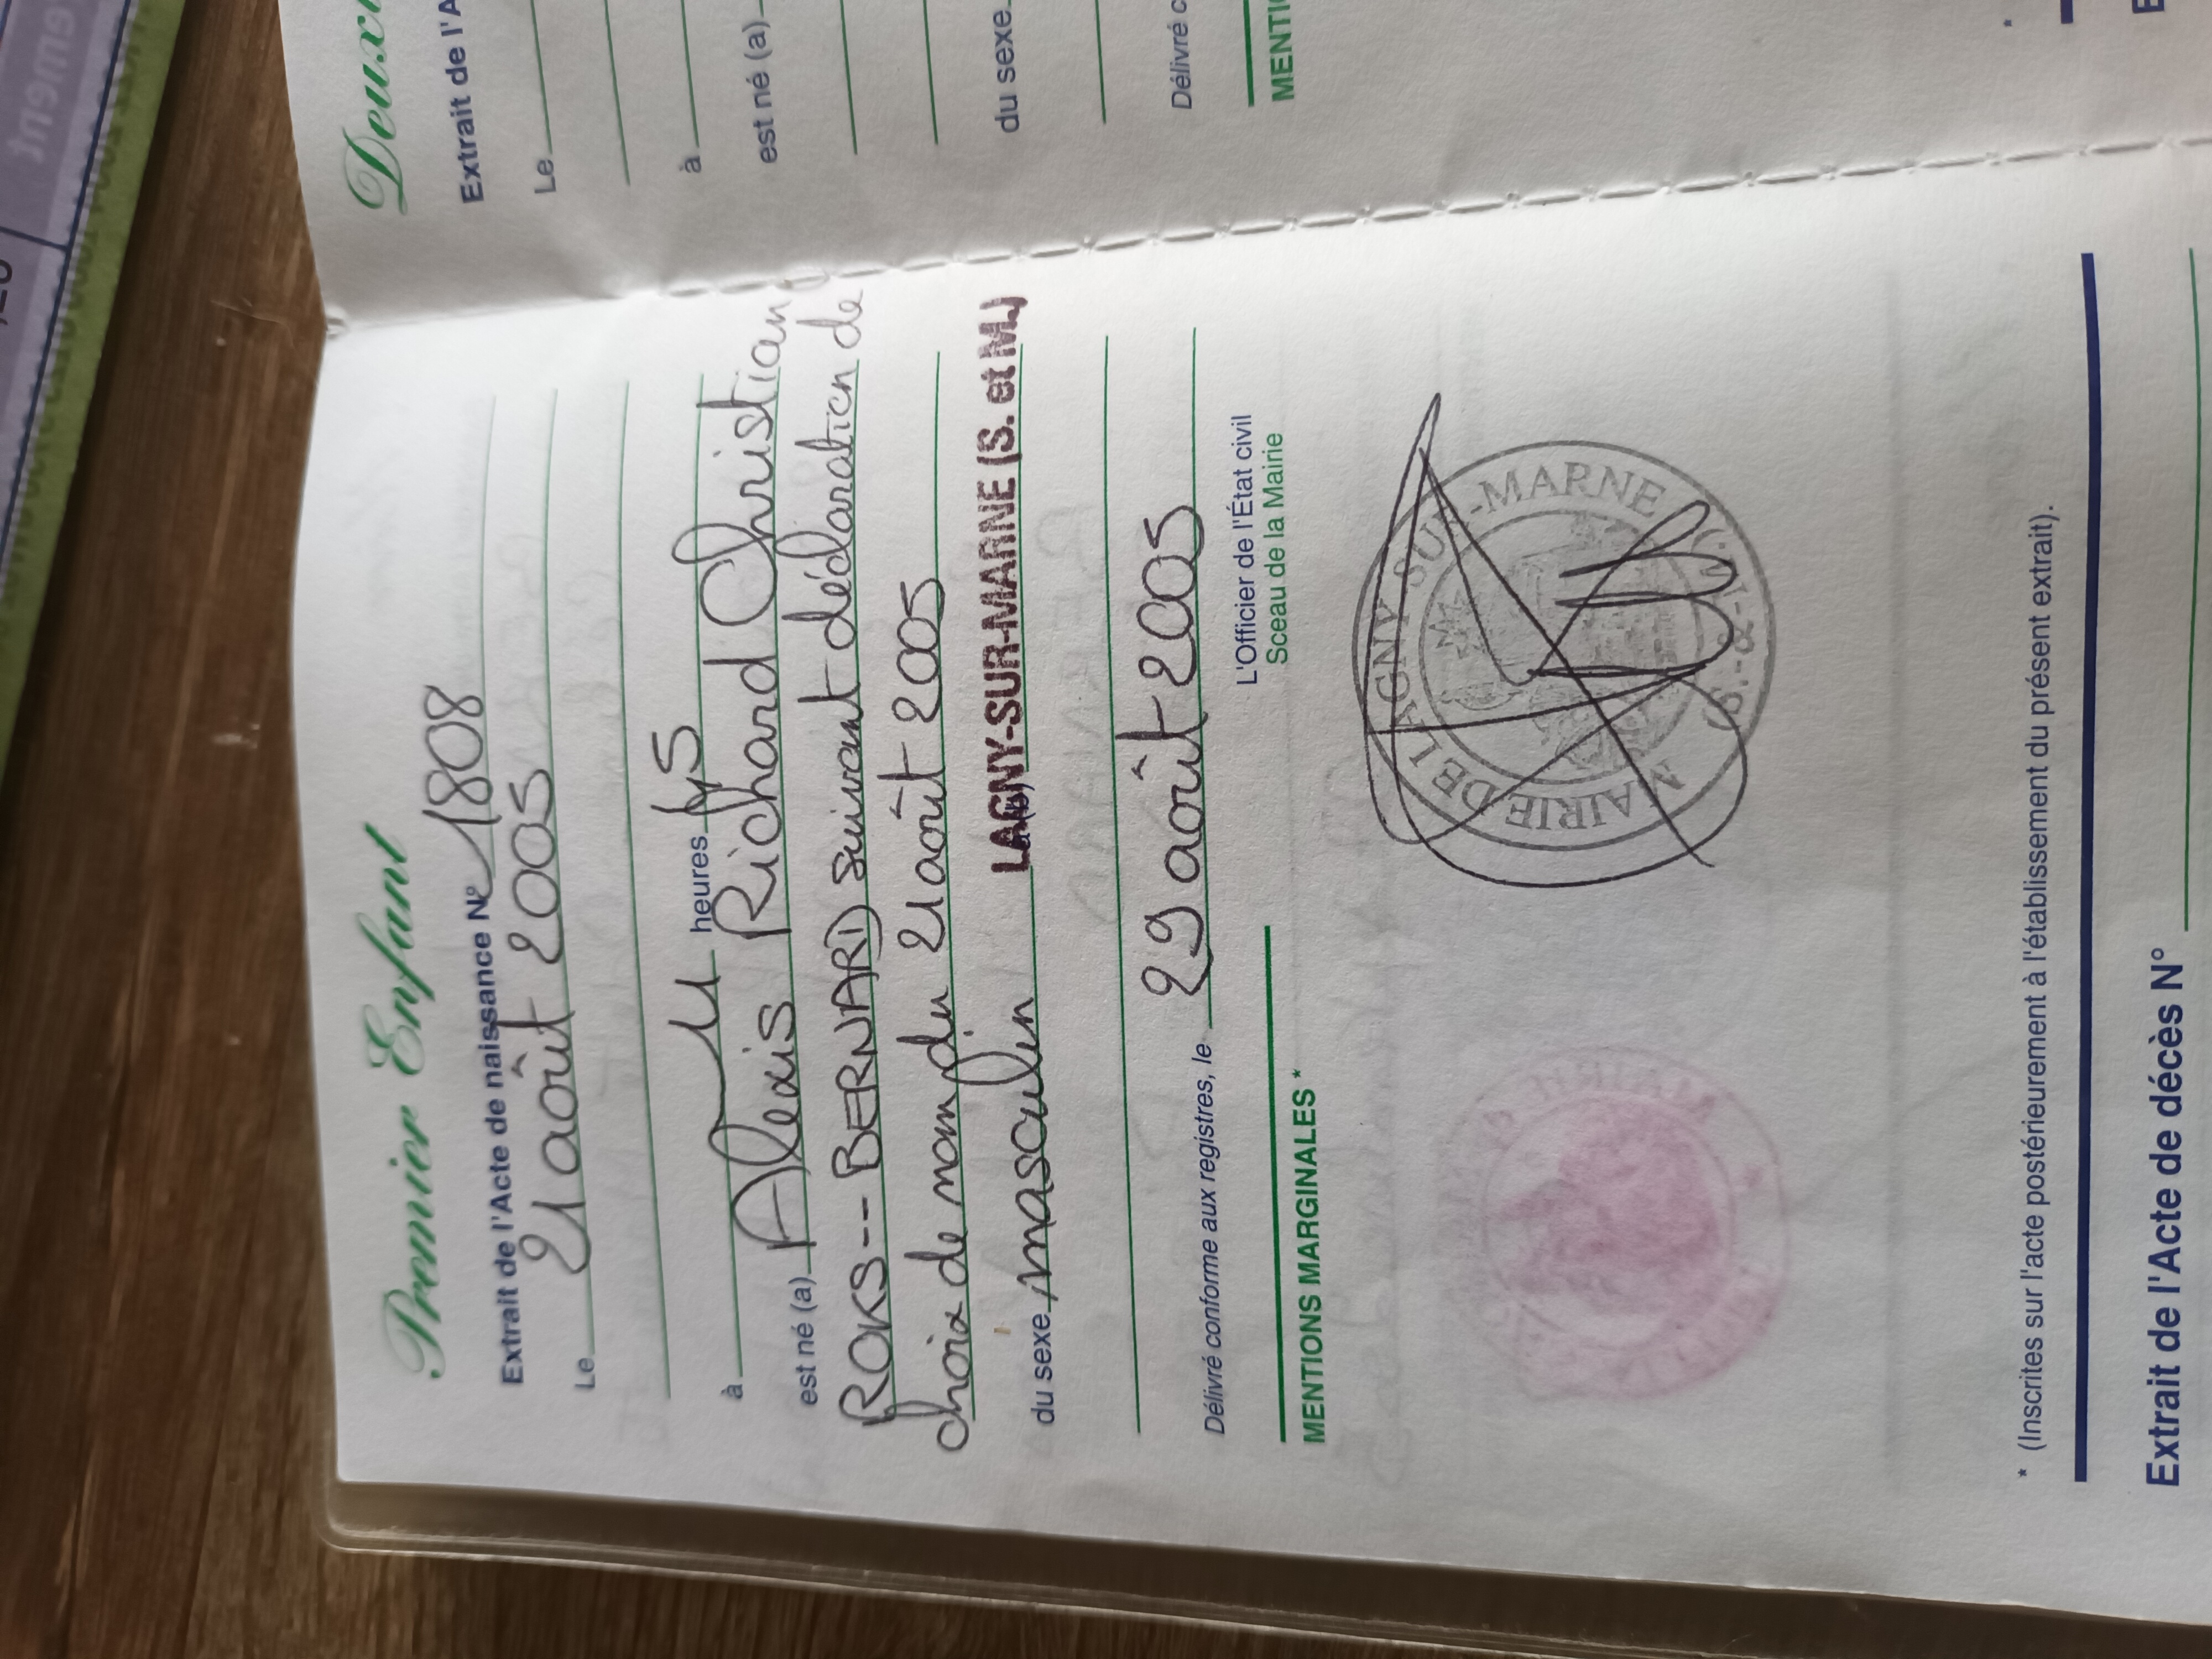 Premier Enfant
Extrait de l'Acte de naissance N° 1808
Le 21 août 2005
à 11 heures 45
est né (a) Alexis Richard Christian
ROKS -- BERNARD suivant déclaration de
choix de nom du 21 août 2005
du sexe masculin LAGNY-SUR-MARNE (S. et M.)
Délivré conforme aux registres, le 29 août 2005
L'Officier de l'État civil
Sceau de la Mairie
MENTIONS MARGINALES *
MAIRIE DE LAGNY-SUR-MARNE (S.-&-M.)
* (Inscrites sur l'acte postérieurement à l'établissement du présent extrait).
Extrait de l'Acte de décès N°
Deuxi
Extrait de l'A
Le
à
est né (a)
du sexe
Délivré c
MENTI
*
E